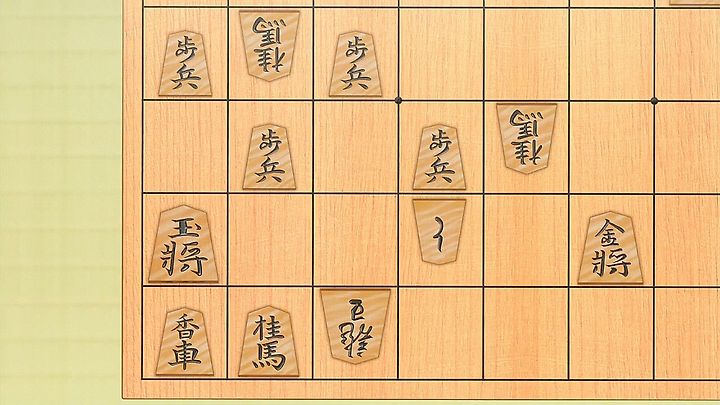 歩兵
桂馬
歩兵
歩兵
歩兵
桂馬
玉將
と
金將
香車
桂馬
龍王